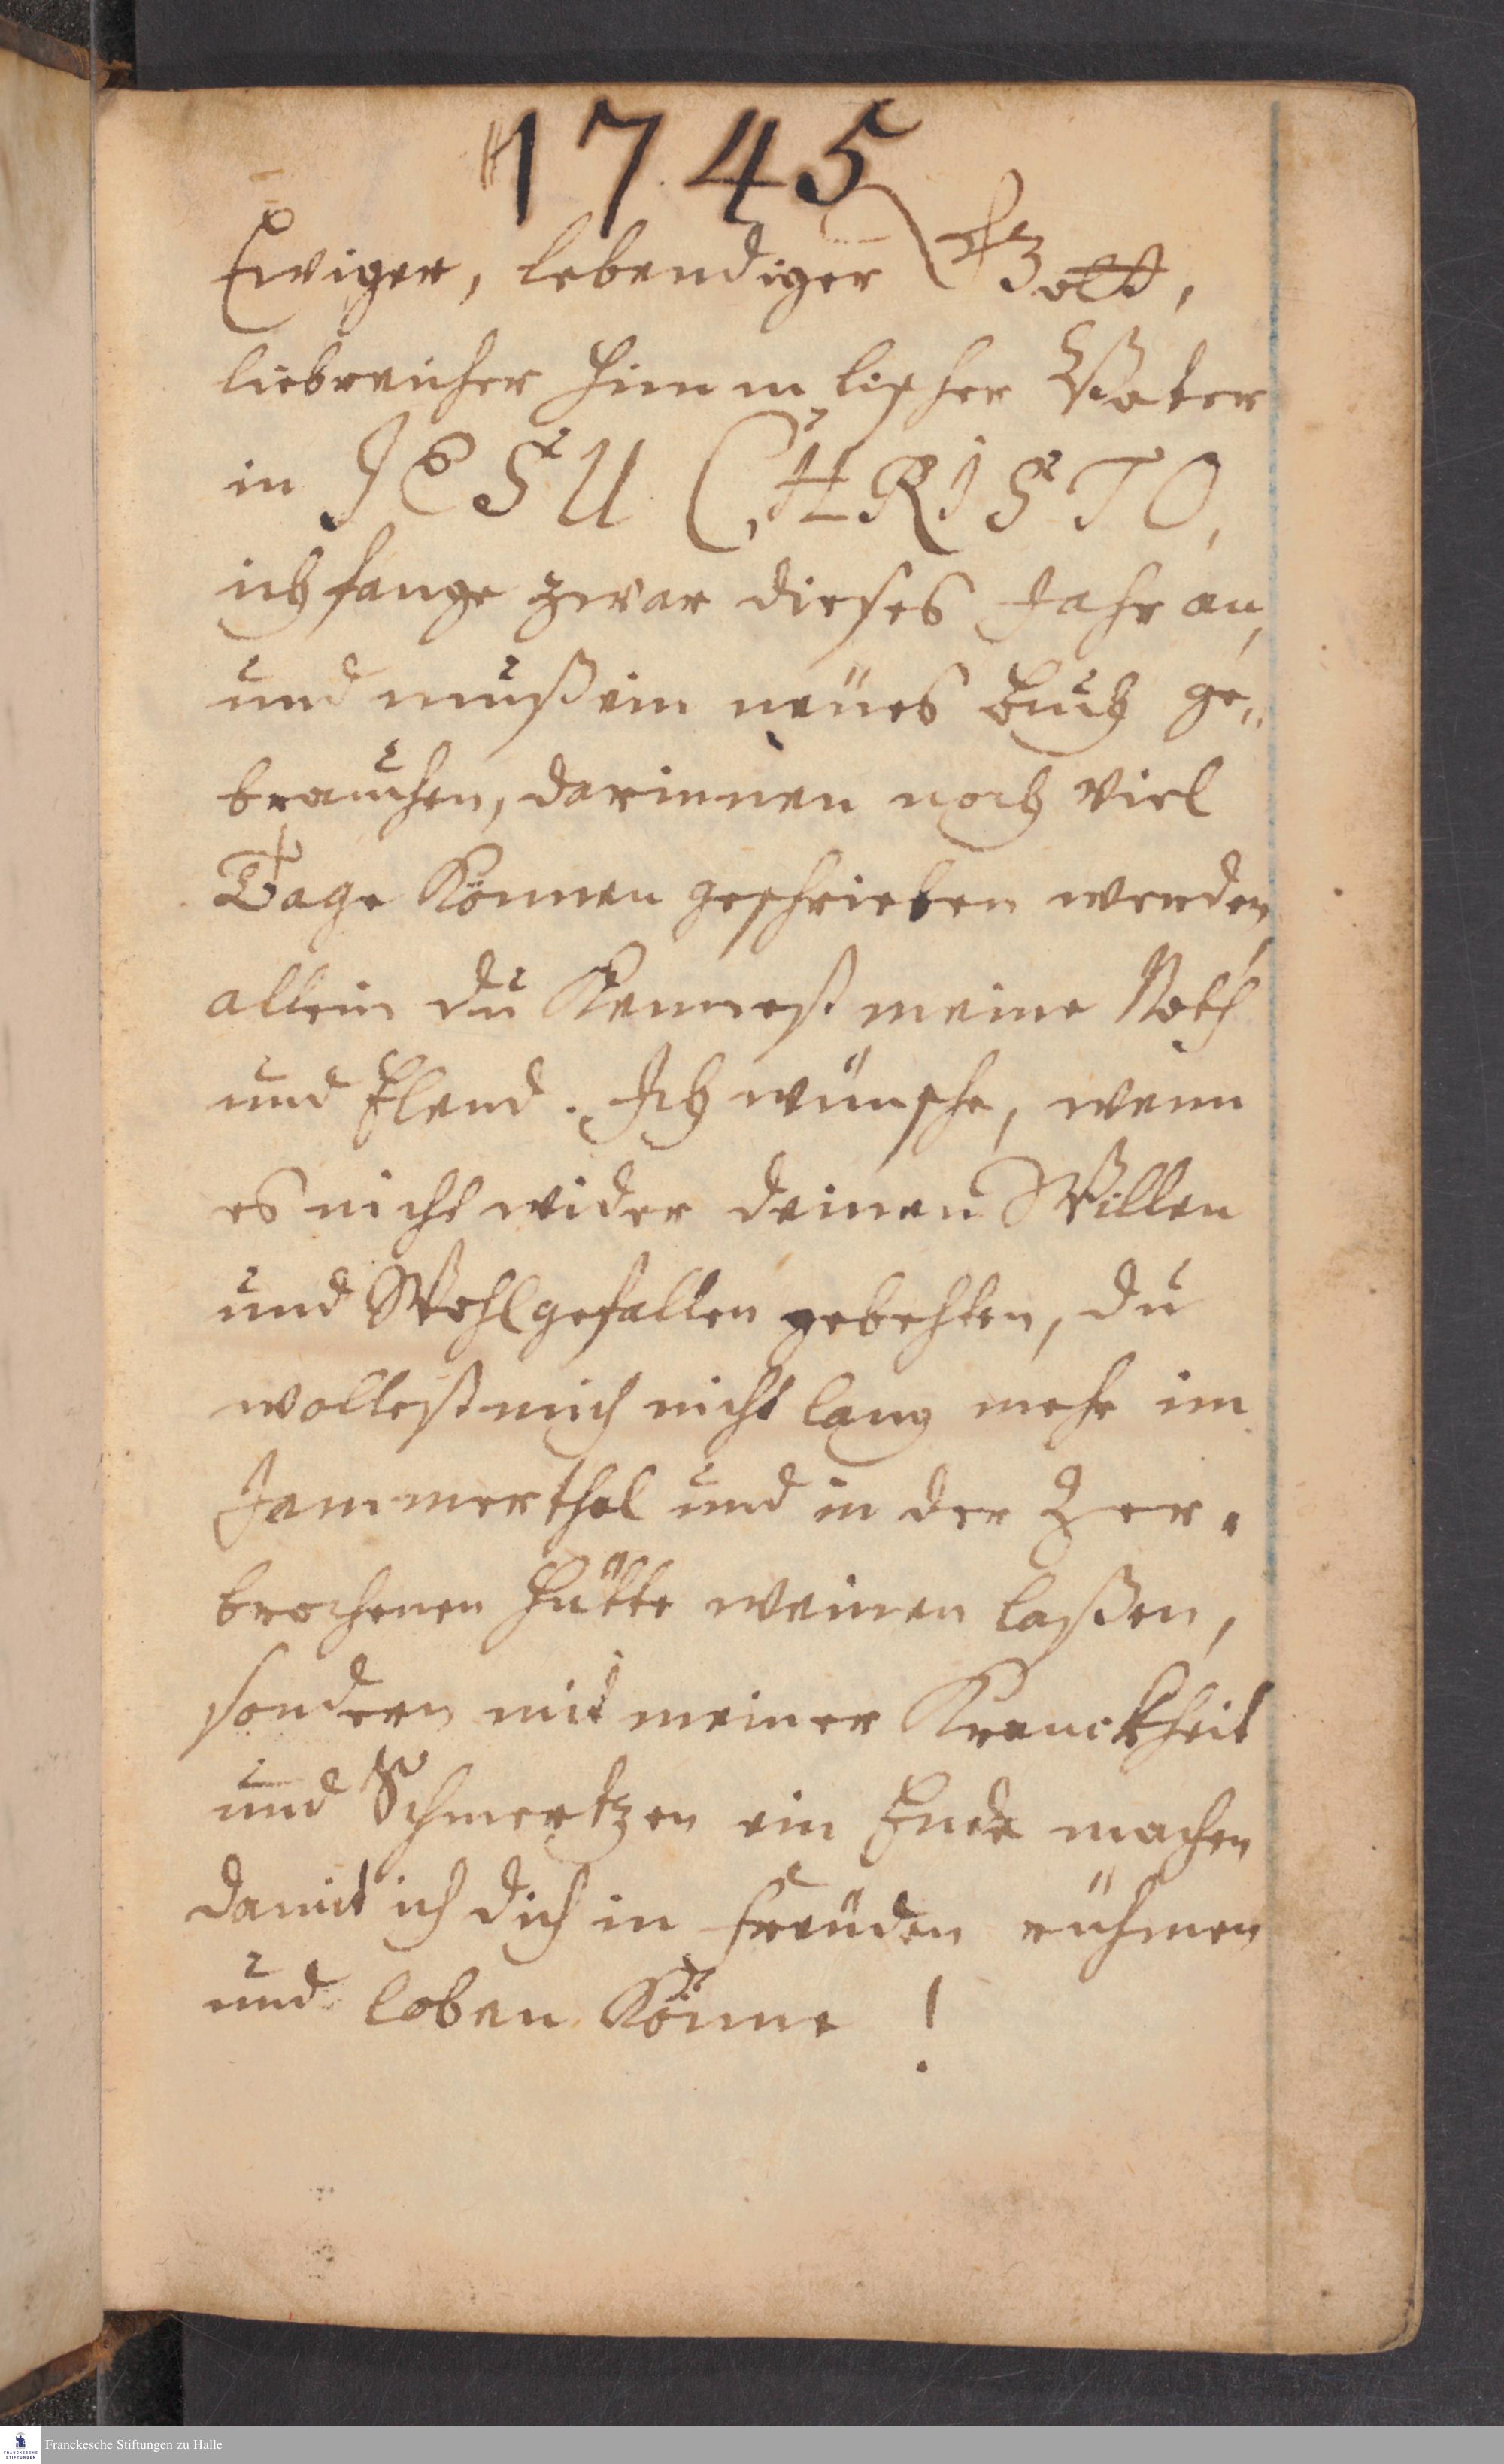 1745
Ewiger, lebendiger Gott,
liebreicher himmlischer Vater
in JESU CHRISTO,
ich fange zwar dieses Jahr an,
und muß ein neües Buch ge„
brauchen, darinnen noch viel
Tage können geschrieben werden,
allein du kennest meine Noth
und Elend. Ich wünsche, wenn
es nicht wider deinen Willen
und Wohlgefallen gebehten, du
wollest mich nicht lang mehr im
Jammerthal und in der zer„
brochenen Hütte weinen laßen,
sondern mit meiner Kranckheit
und Schmertzen ein Ende machen
damit ich dich in Freüden rühmen
und loben könne!
FRANCKESCHE STIFTUNGEN
Franckesche Stiftungen zu Halle